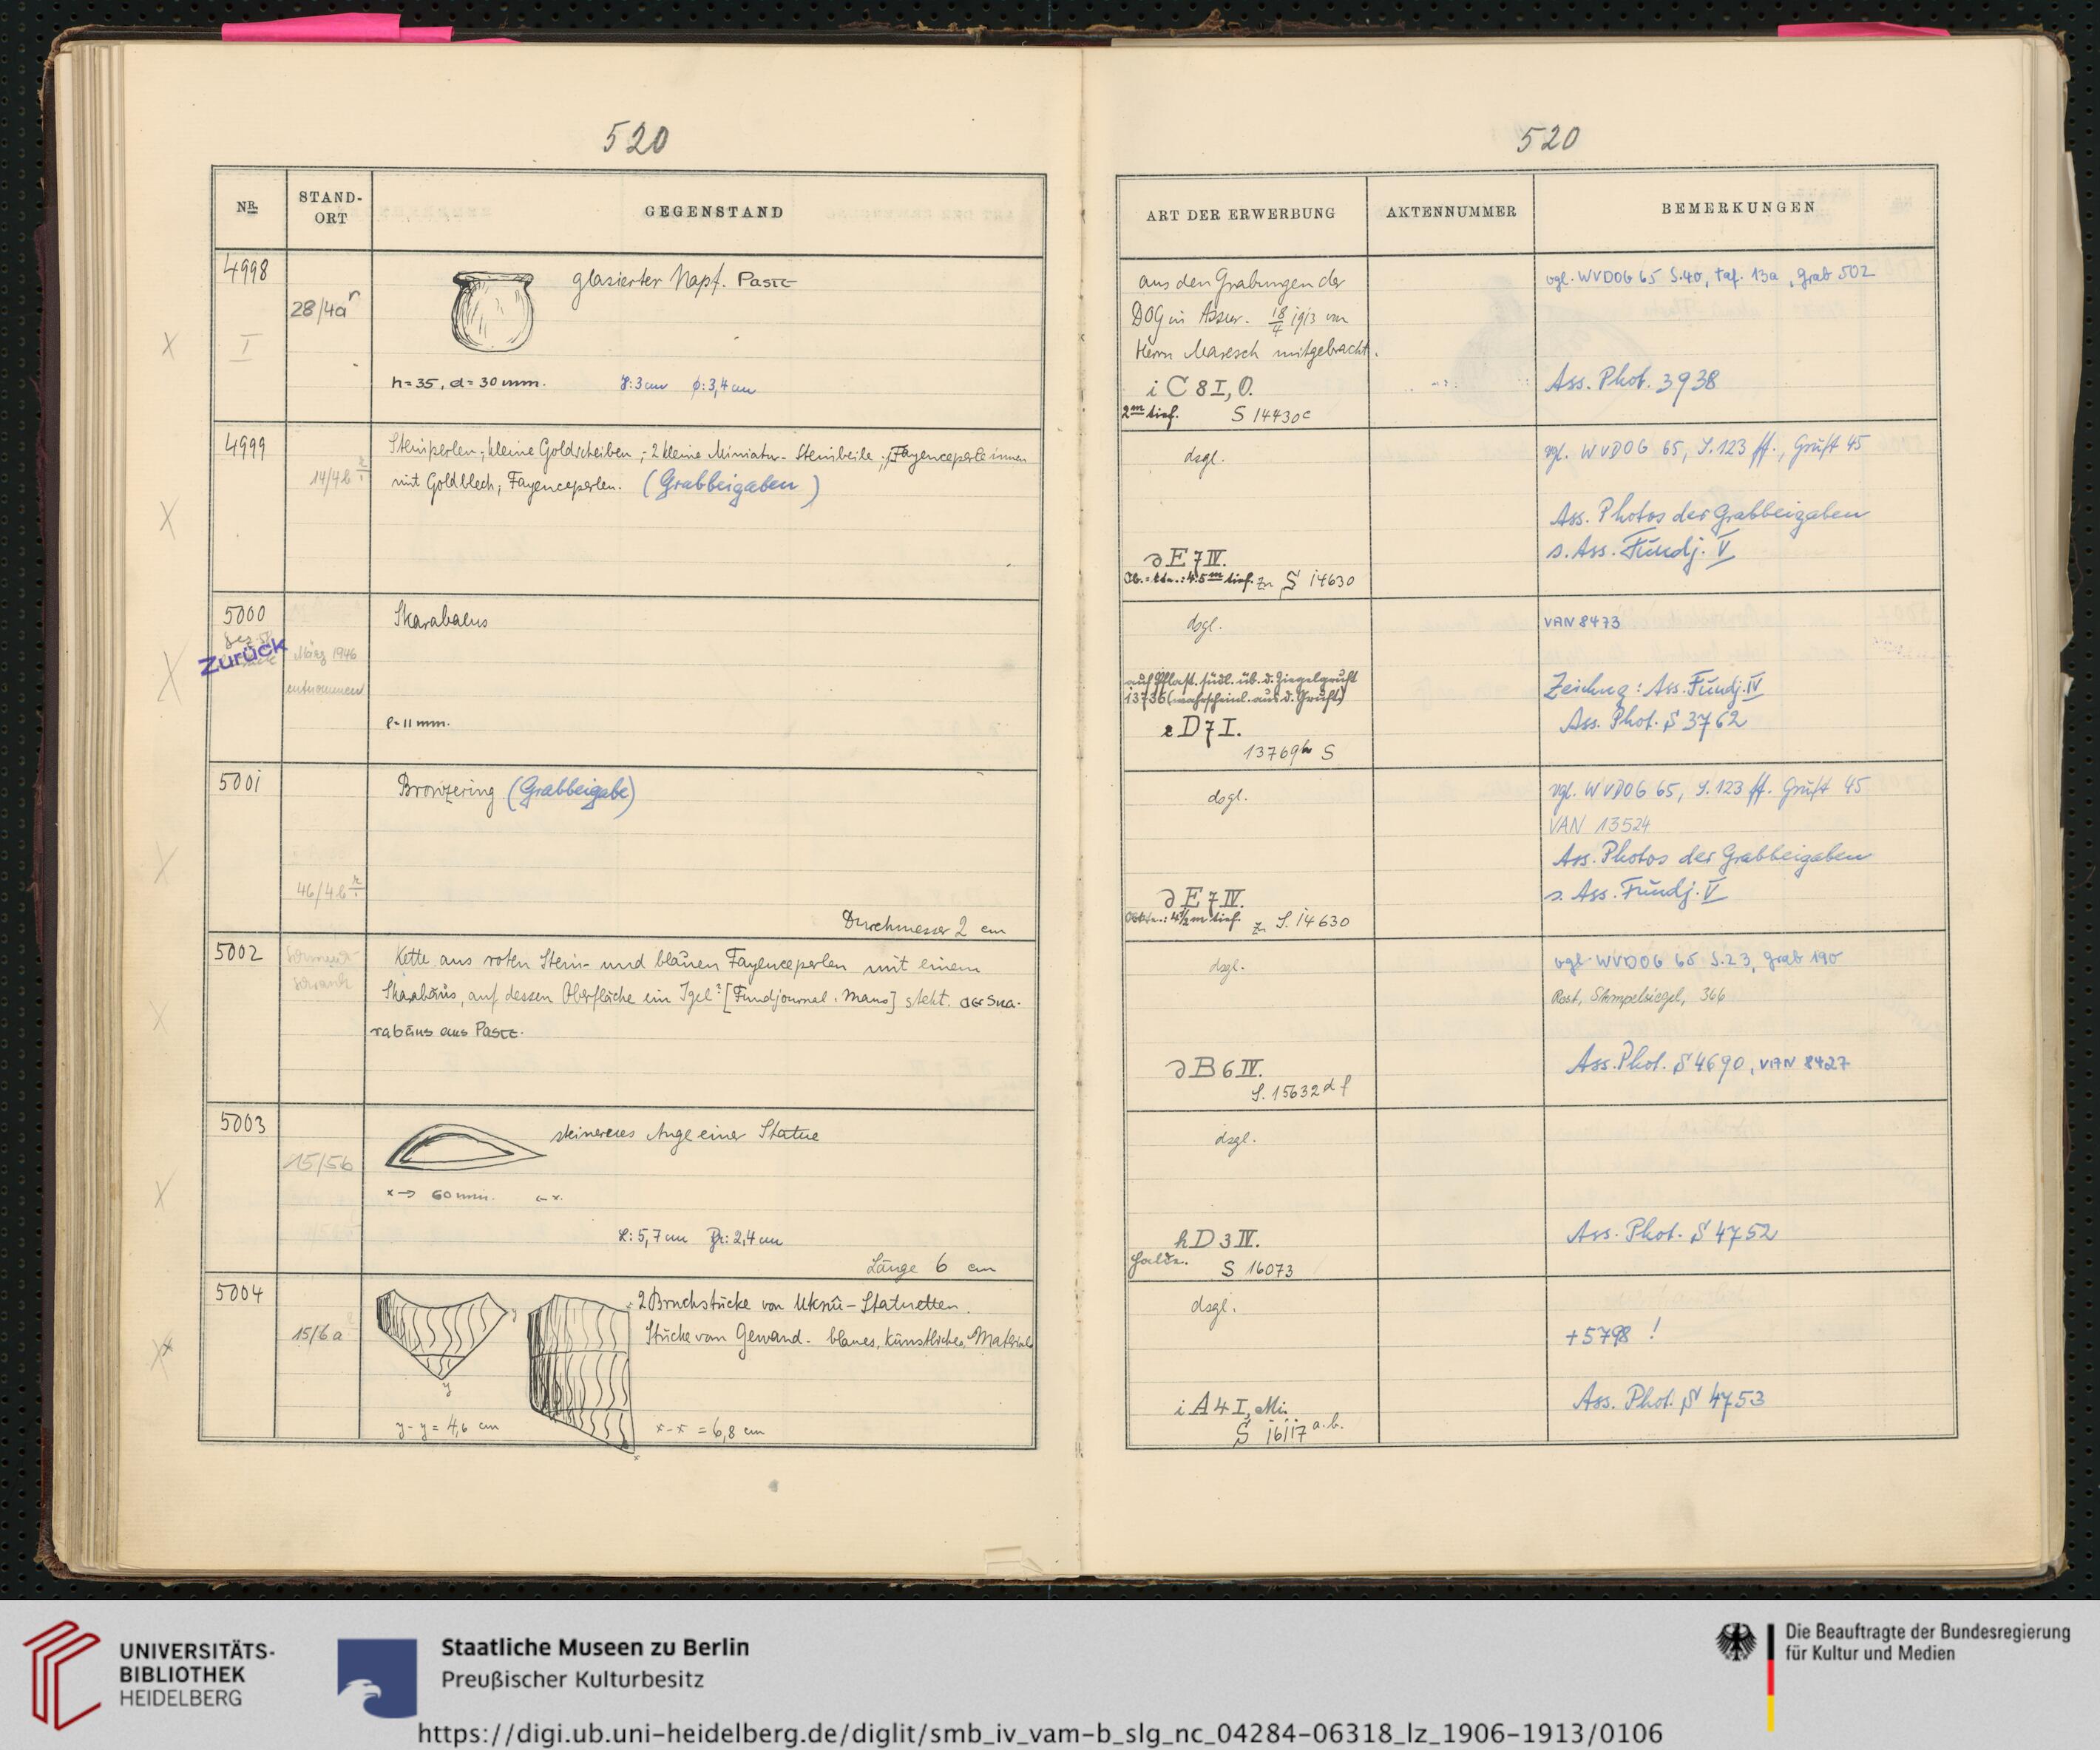 520
NR.
STAND-
ORT
GEGENSTAND
4998
28/4a r
I
glasierter Napf. Paste
h=35, d=30 mm.
H: 3 cm φ: 3,4 cm
4999
14/4b
Steinperlen; kleine Goldscheiben; 2 kleine Miniatur-Steinbeile; Fayenceperle innen
mit Goldblech; Fayenceperlen. (Grabbeigaben)
5000
Zurück
März 1946
entnommen
Skarabaeus
l=11 mm.
5001
46/4b
Bronzering (Grabbeigabe)
Durchmesser 2 cm
5002
Kette aus roten Stein- und blauen Fayenceperlen mit einem
Skarabäus, auf dessen Oberfläche ein Igel? [Fundjournal: Maus] steht. der Ska-
rabäus aus Paste.
5003
15/5b
steinernes Auge einer Statue
x → 60 mm. ← x.
L: 5,7 cm Br: 2,4 cm
Länge 6 cm
5004
15/6a
2 Bruchstücke von Uknû-Statuetten.
Stücke vom Gewand. blaues, künstliches Material
y
y
y-y = 4,6 cm
x-x = 6,8 cm
x
520
ART DER ERWERBUNG
AKTENNUMMER
BEMERKUNGEN
aus den Grabungen der
DOG in Assur. 18/4 1913 von
Herrn Maresch mitgebracht.
iC8I, O.
2m tief. S 14430c
vgl. WVDOG 65 S.40, Taf. 13a, Grab 502
Ass. Phot. 3938
dsgl.
dE7IV.
4.5m tief. zu S 14630
vgl. WVDOG 65, S.123 ff., Gruft 45
Ass. Photos der Grabbeigaben
s. Ass. Fundj. V
dsgl.
auf Pflast. südl. üb. d. Ziegelgruft
13736 (wahrscheinl. aus d. Gruft)
eD7I.
13769h S
VAN 8473
Zeichng: Ass. Fundj. IV
Ass. Phot. S 3762
dsgl.
dE7IV.
4½ m tief. zu S. 14630
vgl. WVDOG 65, S.123 ff. Gruft 45
VAN 13524
Ass. Photos der Grabbeigaben
s. Ass. Fundj. V
dsgl.
dB6IV.
S. 15632 d f
vgl. WVDOG 65 S.23, Grab 190
Rost, Stempelsiegel, 366
Ass. Phot. S 4690, VAN 8427
dsgl.
hD3IV.
Halde. S 16073
Ass. Phot. S 4752
dsgl.
iA4I, Mi.
S 16117 a.b.
+5798 !
Ass. Phot. S 4753
UNIVERSITÄTS-
BIBLIOTHEK
HEIDELBERG
Staatliche Museen zu Berlin
Preußischer Kulturbesitz
Die Beauftragte der Bundesregierung
für Kultur und Medien
https://digi.ub.uni-heidelberg.de/diglit/smb_iv_vam-b_slg_nc_04284-06318_lz_1906-1913/0106